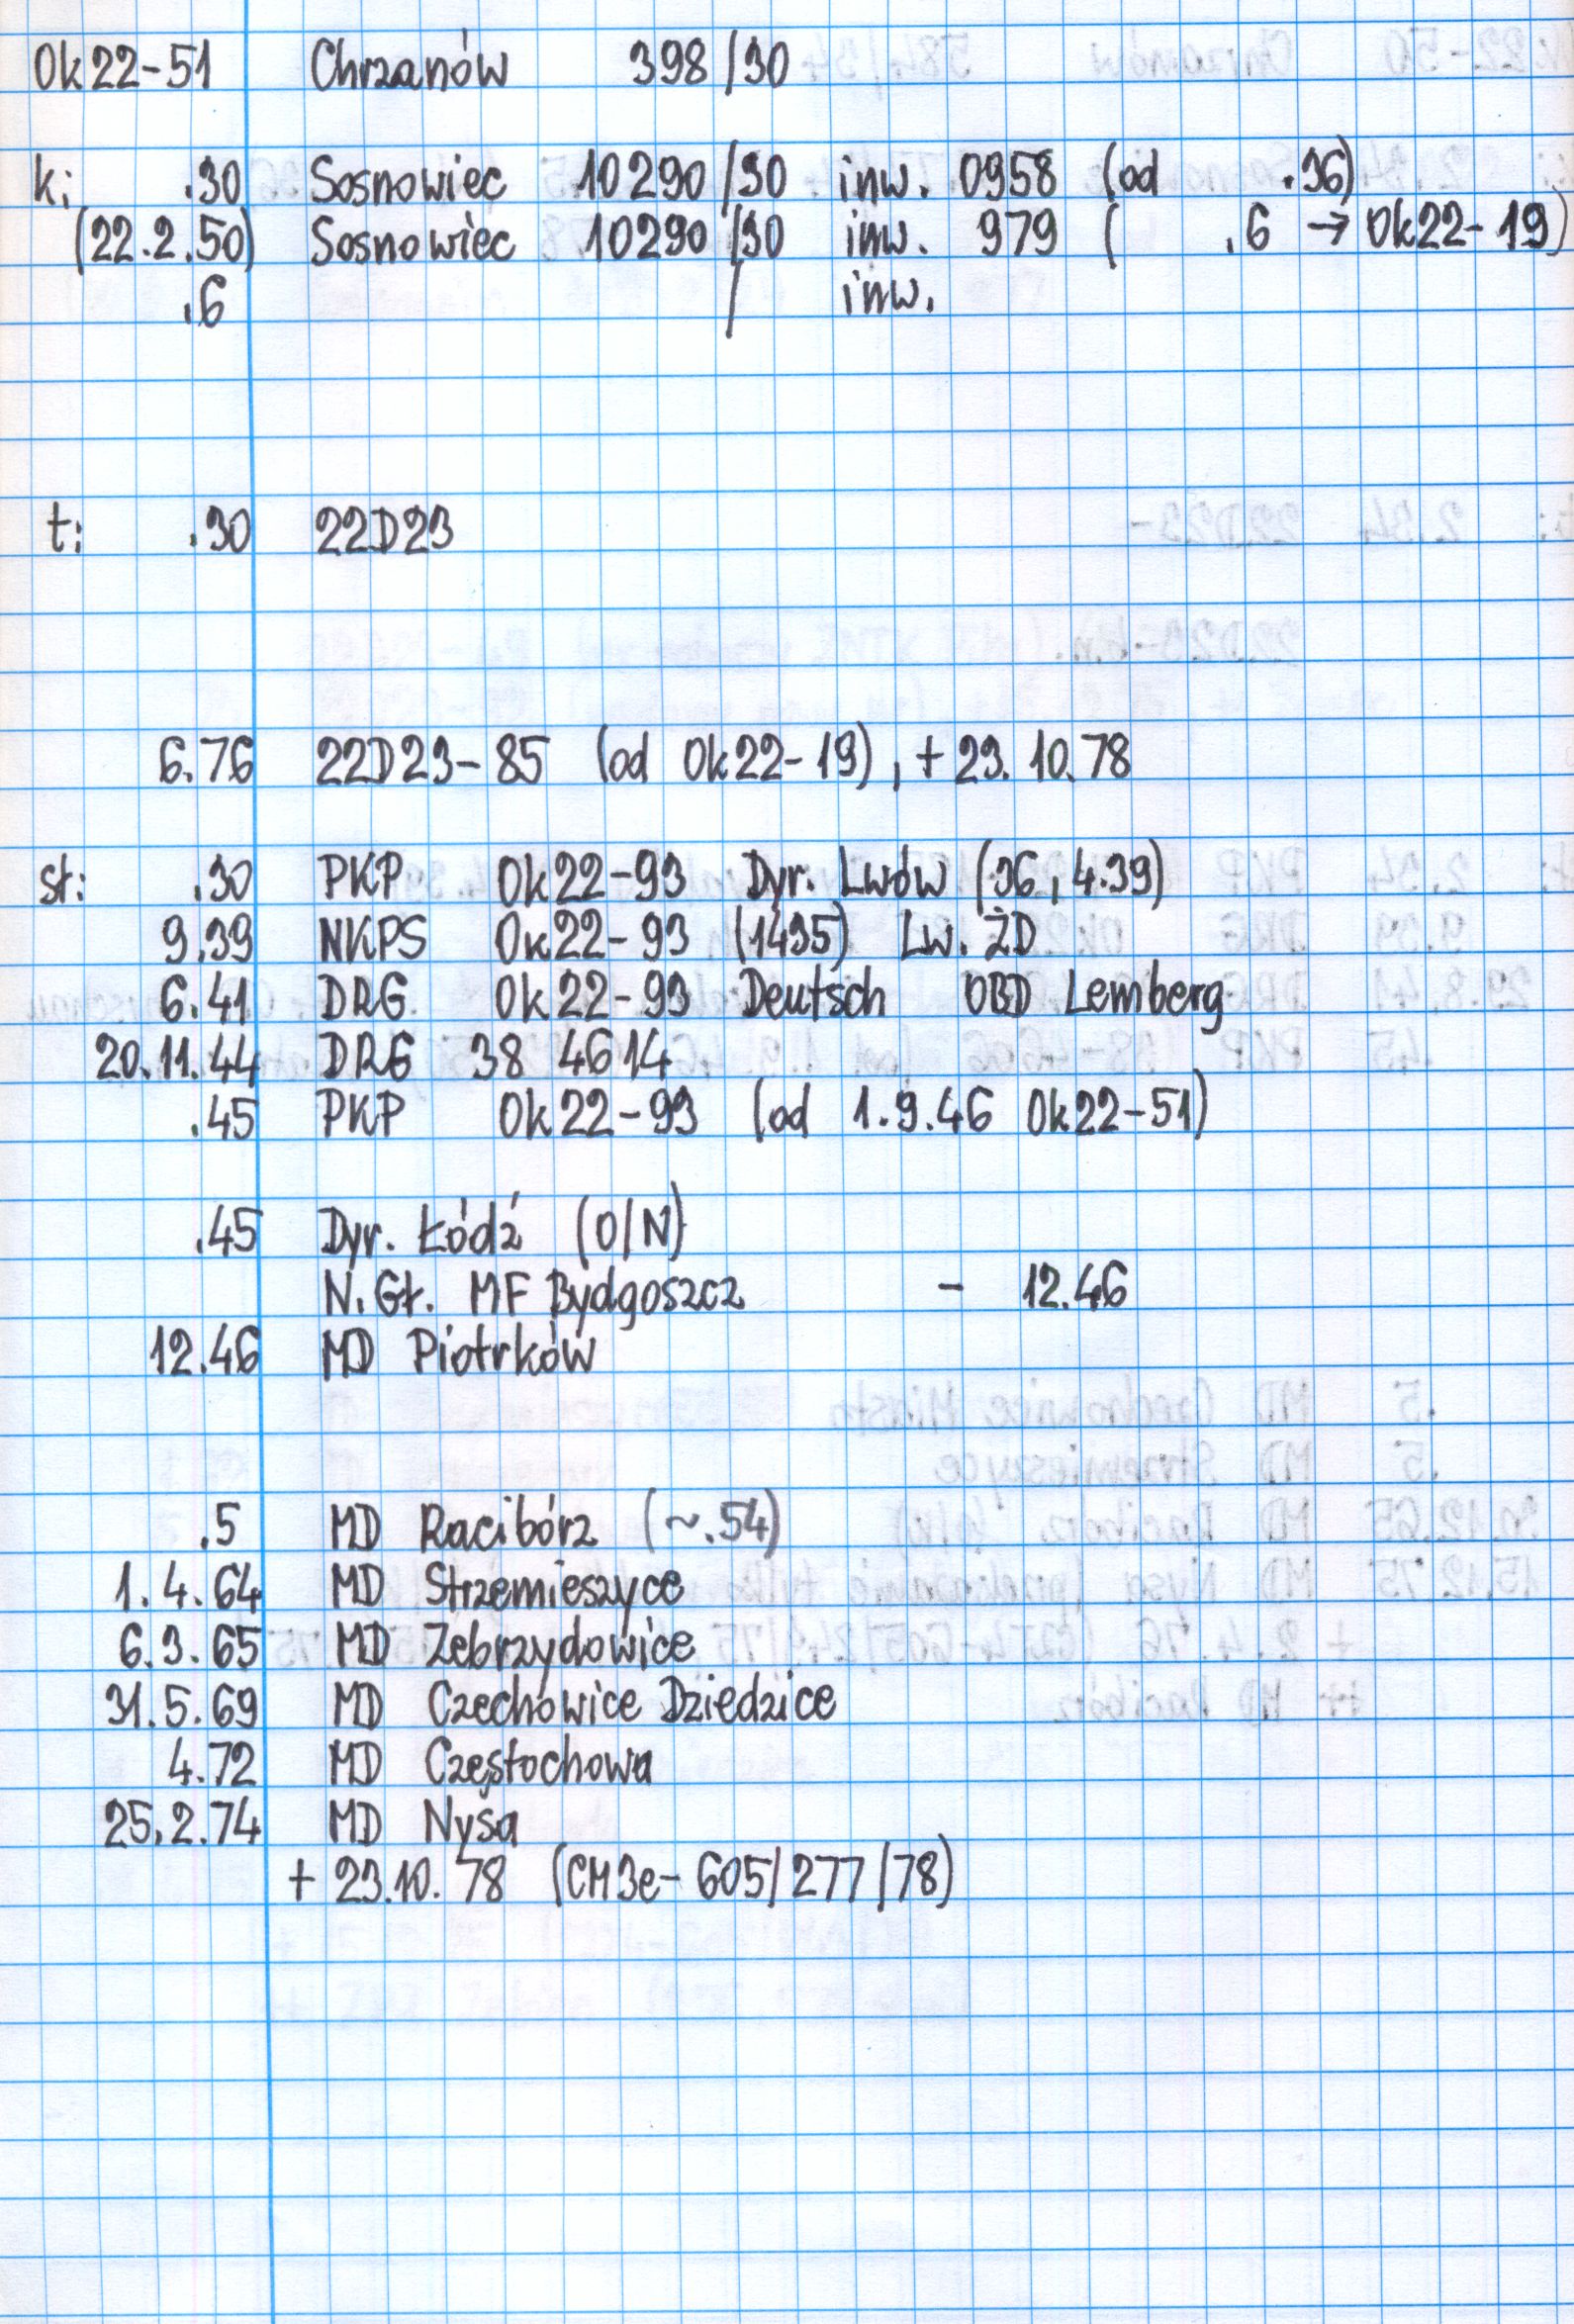 Ok22-51 Chrzanów 398/30
k: .30 Sosnowiec 10290/30 inw. 0958 (od .36)
(22.2.50) Sosnowiec 10290/30 inw. 979 ( .6 → Ok22-19)
.6 / inw.
t: .30 22D23
6.76 22D23-85 (od Ok22-19), + 23.10.78
st: .30 PKP Ok22-93 Dyr. Lwów (36, 4.39)
9.39 NKPS Ок22-93 (1435) Lw. ŻD
6.41 DRG Ok22-93 Deutsch OBD Lemberg
20.11.44 DRG 38 4614
.45 PKP Ok22-93 (od 1.9.46 Ok22-51)
.45 Dyr. Łódź (O/N)
N.Gł. MF Bydgoszcz - 12.46
12.46 MD Piotrków
.5 MD Racibórz (~.54)
1.4.64 MD Strzemieszyce
6.3.65 MD Zebrzydowice
31.5.69 MD Czechowice Dziedzice
4.72 MD Częstochowa
25.2.74 MD Nysa
+ 23.10.78 (CM3e-605/277/78)